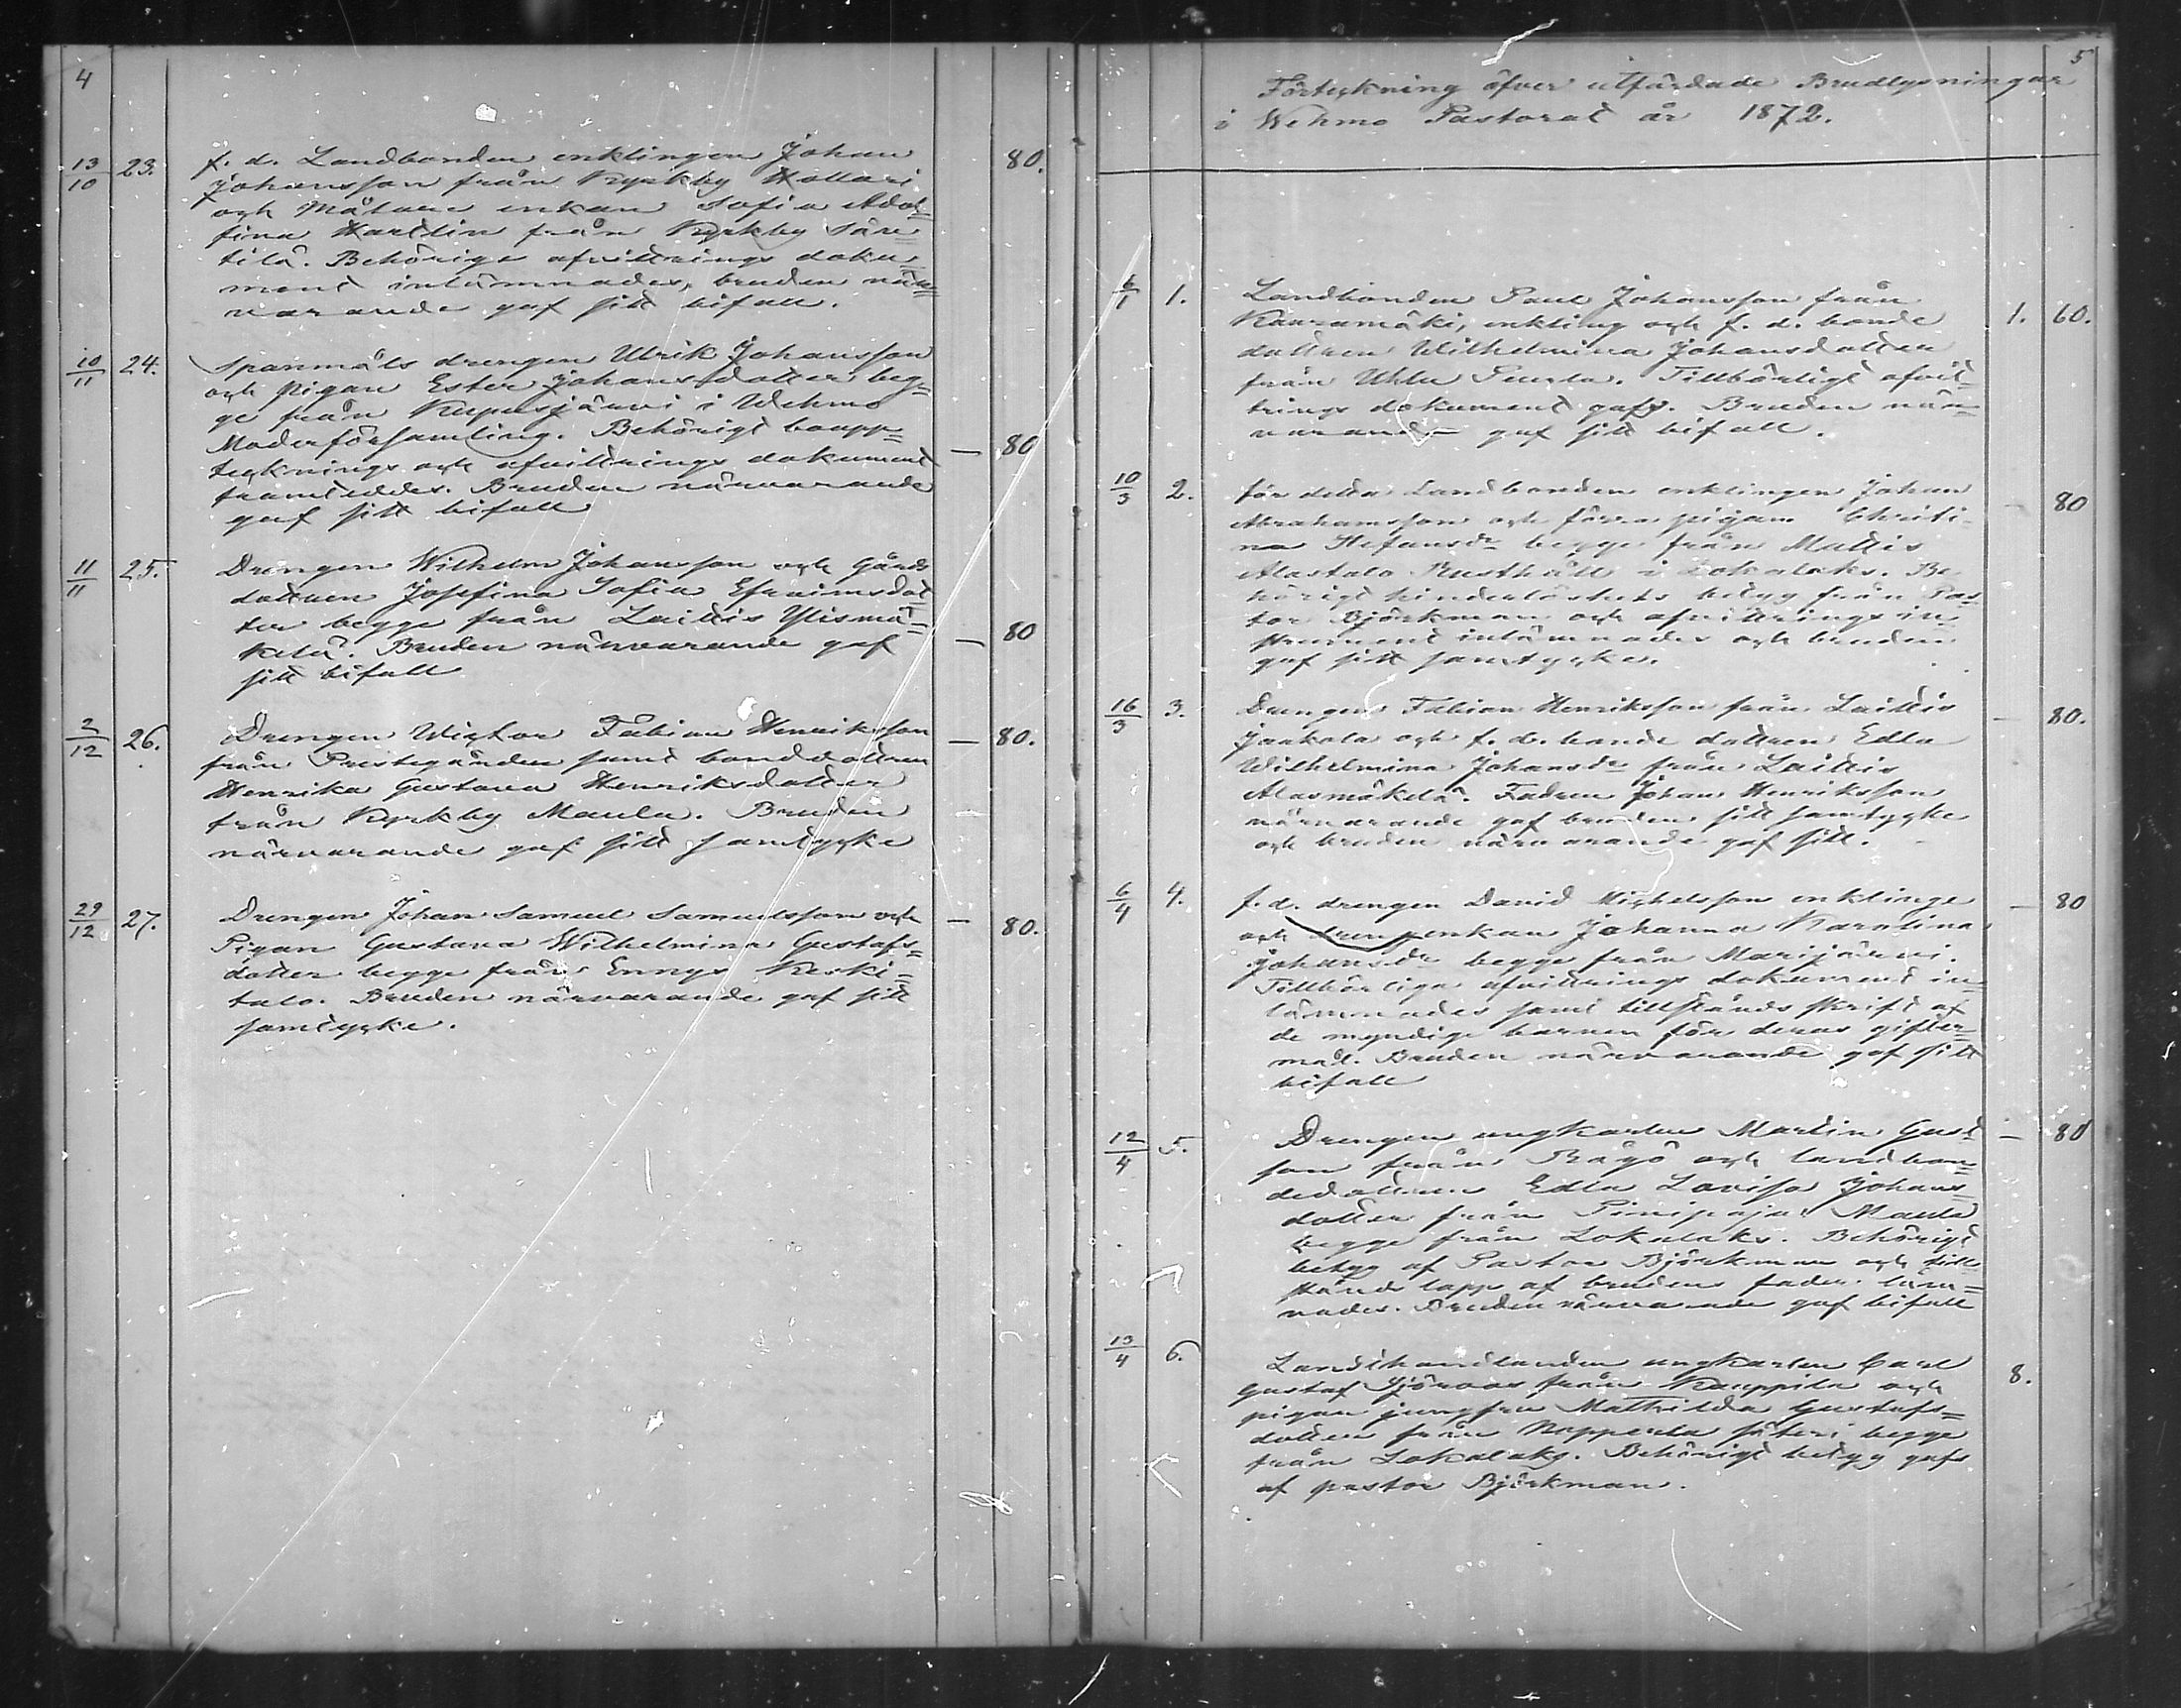 4
13/10 23. f. d. Landbonden enklingen Johan 80.
Johansson från Kyrkby Hollari
och Målare enkan Sofia Adol=
fina Hartlin från Kyrkby Säre=
tilä. Behöriga afvittrings doku=
ment inlämnades, bruden när=
varande gaf sitt bifall.
10/11 24. Spanmåls drengen Ulrik Johansson
och Pigan Ester Johansdotter beg=
ge från Kupusjärvi i Wehmo
Moderförsamling. Behörigt boupp=
tecknings och afvittrings dokument — 80
framteddes. Bruden närvarande
gaf sitt bifall
11/11 25. Drengen Wilhelm Johansson och Gårds
dottren Josefina Sofia Efraimsdot=
ter begge från Laitis Ylismä=
kelä. Bruden närvarande gaf — 80
sitt bifall
2/12 26. Drengen Victor Fabian Henriksson — 80.
från Prestegården samt bonddottren
Henrika Gustava Henriksdotter
från Kyrkby Maula. Bruden
närvarande gaf sitt samtycke
29/12 27. Drengen Johan Samuel Samuelsson och — 80.
Pigan Gustava Wilhelmina Gustafs=
dotter begge från Ennys Keski=
talo. Bruden närvarande gaf sitt
samtycke.
5
Förteckning öfver utfärdade Brudlysningar
i Wehmo Pastorat år 1872.
6/1 1. Landbonden Paul Johansson från
Kauramäki, enkling och f. d. bonde 1. 60.
dottren Wilhelmina Johansdotter
från Uhlu Seurla. Tillbörligt afvit=
trings dokument gafs. Bruden när=
varande gaf sitt bifall.
10/3 2. för detta Landbonden enklingen Johan — 80
Abrahamsson och förra pigan Christi=
na Stefansdr begge från Mattis
Alastalo Rusthåll i Lokalaks. Be
hörigt hinderlöshets betyg från Pas=
tor Björkman och afvittrings in=
strument inlämnades och bruden
gaf sitt samtycke.
16/3 3. Drengen Fabian Henriksson från Laitis — 80.
Jaakola och f. d. bonde dottren Edla
Wilhelmina Johansdr från Laitis
Alasmäkelä. Fadren Johan Henriksson
närvarande gaf bruden sitt samtycke
och bruden närvarande gaf sitt.
6/4 4. f. d. drengen David Michelsson enklinge — 80
och drengenkan Johanna Karolina
Johansdr begge från Marijärvi.
Tillbörliga afvittrings dokument in=
lämnades samt tillstånds skrift af
de myndige barnen för deras gifter=
mål. Bruden närvarande gaf sitt
bifall
12/4 5. Drengen ungkarlen Martin Gust= — 80
son från Rågö och landbon=
dedottren Edla Lovisa Johans=
dotter från Pinipaja Maula
begge från Lokalaks. Behörigt
betyg af Pastor Björkman och till=
stånds lapp af brudens fader läm=
nades. Bruden närvarande gaf bifall
13/4 6. Landthandlanden ungkarlen Carl 8.
Gustaf Sjöroos från Kauppila och
pigan jungfru Mathilda Gustafs=
dotter från Nopperla säteri begge
från Lokalaks. Behörigt betyg gafs
af pastor Björkman.